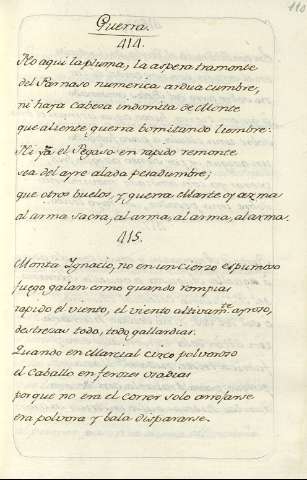 110
Guerra.
414.
No aqui la pluma, la aspera tramonte
del Parnaso numerica ardua cumbre,
ni haya Cabeza indomita de Monte
que aliente guerra bomitando lumbre:
Ni ya el Pegaso en rapido remonte
sea del ayre alada pesadumbre;
que otros buelos, y guerra Marte oy arma
al arma sacra, al arma, al arma, al arma.
415.
Monta Ygnacio, no en un Cierzo espumoso
fuego galan como quando rompias
rapido el viento, el viento altivamte. ayroso,
destrezas todo, todo gallardias.
Quando en Marcial circo polvoroso
el Caballo en feroces osadias
porque no era el correr solo arrojarse
era polvora y bala dispararse.